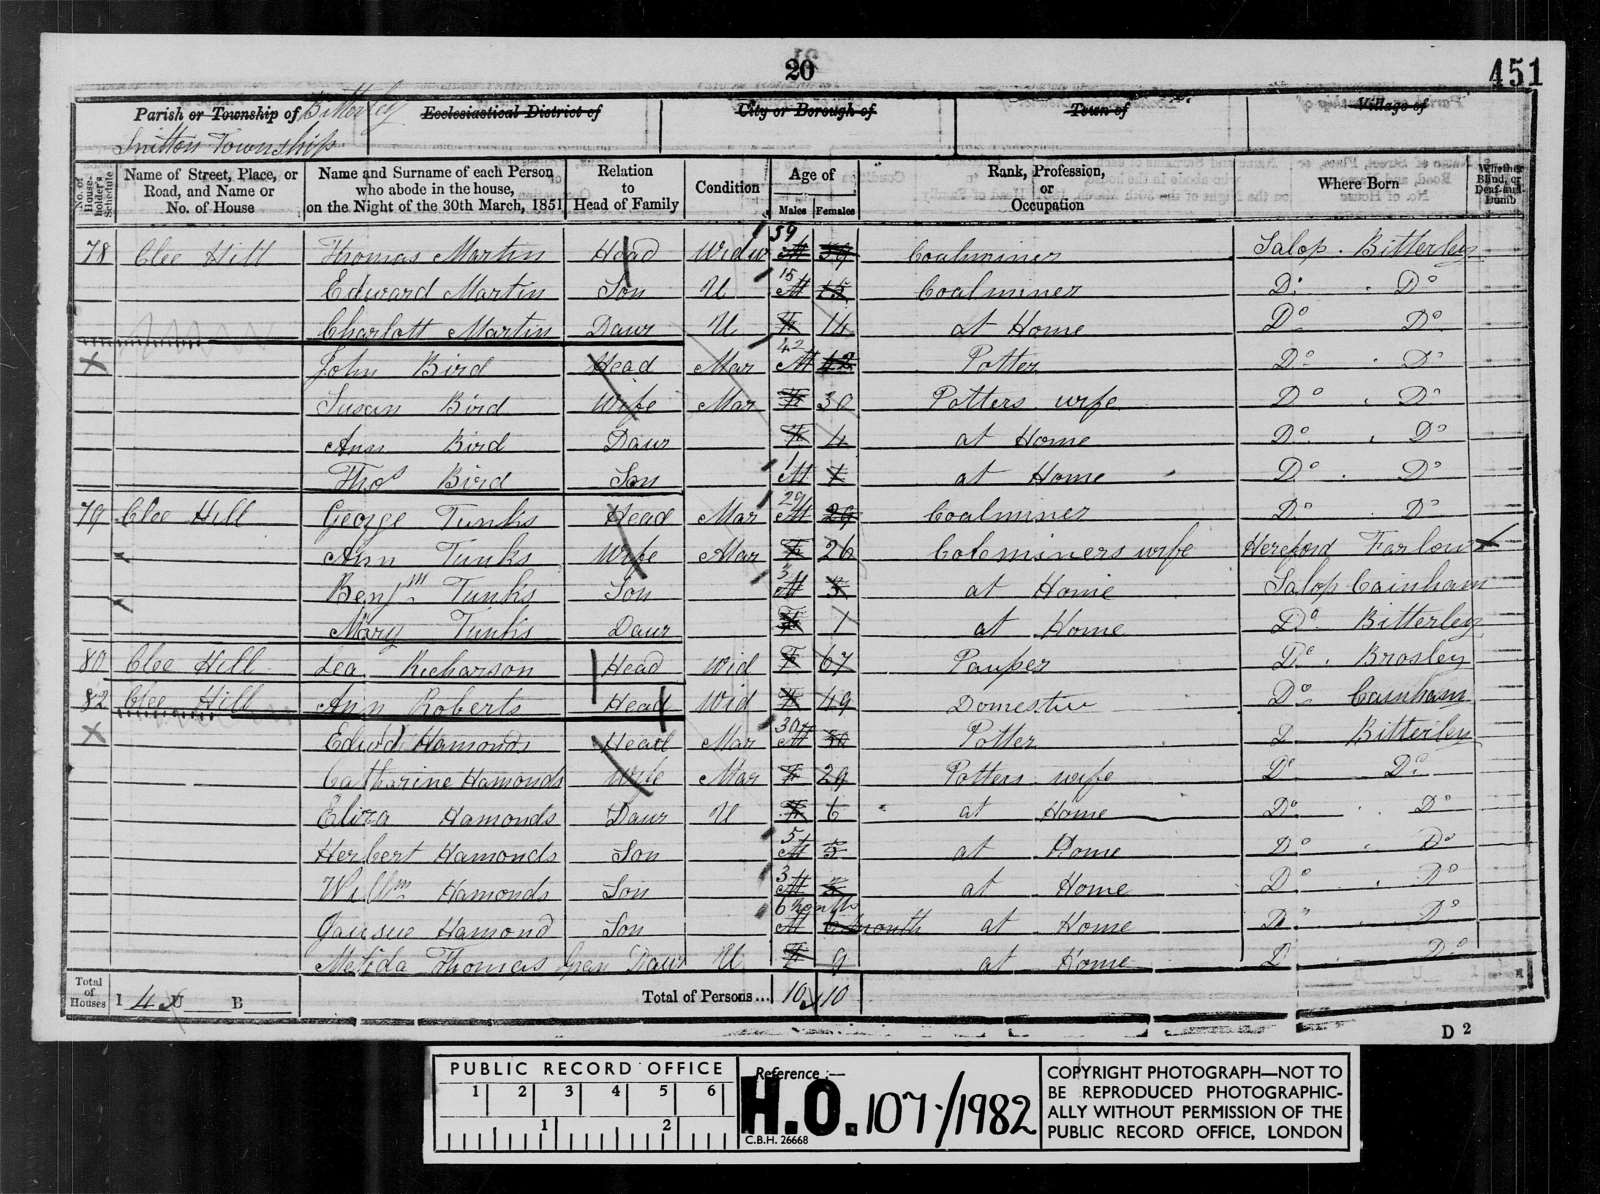 20
451
Parish or Township of Bitterley
Ecclesiastical District of
City or Borough of
Town of
Village of
Snitton Township
No. of House-holder's Schedule
Name of Street, Place, or Road, and Name or No. of House
Name and Surname of each Person who abode in the house, on the Night of the 30th March, 1851
Relation to Head of Family
Condition
Age of
Males Females
Rank, Profession, or Occupation
Where Born
Whether Blind, or Deaf-and-Dumb
78 Clee Hill Thomas Martin Head Widwr 59 M 59 Coalminer Salop . Bitterley
Edward Martin Son U 15 M 15 Coalminer Do . Do
Charlott Martin Daur U F 14 at Home Do Do
X John Bird Head Mar 42 M 42 Potter Do . Do
Susan Bird Wife Mar F 30 Potters wife Do . Do
Ann Bird Daur F 4 at Home Do . Do
Thos Bird Son 1 M 1 at Home Do . Do
79 Clee Hill George Tunks Head Mar 29 M 29 Coalminer Do . Do
Ann Tunks Wife Mar F 26 Colminers wife Hereford Farlow X
Benjm Tunks Son 3 M 3 at Home Salop Cainham
Mary Tunks Daur F 1 at Home Do Bitterley
80 Clee Hill Lea Richarson Head Wid F 67 Pauper Do . Brosley
82 Clee Hill Ann Roberts Head Wid F 49 Domestic Do Cainham
X Edwd Hamonds Head Mar 30 M 30 Potter D Bitterley
Catharine Hamonds Wife Mar F 29 Potters wife Do Do
Eliza Hamonds Daur U F 6 at Home Do . Do
Herbert Hamonds Son 5 M 5 at Home Do . Do
Willm Hamonds Son 3 M at Home Do . Do
Hamond Son 6 month M 6 month at Home Do . Do
Matilda Thomas Daur U F 9 at Home D . Do
Total of Houses I 4 U B
Total of Persons... 10 10
D 2
PUBLIC RECORD OFFICE
1 2 3 4 5 6
1 2
Reference :—
H.O. 107/1982
C.B.H. 26668
COPYRIGHT PHOTOGRAPH—NOT TO
BE REPRODUCED PHOTOGRAPHIC-
ALLY WITHOUT PERMISSION OF THE
PUBLIC RECORD OFFICE, LONDON